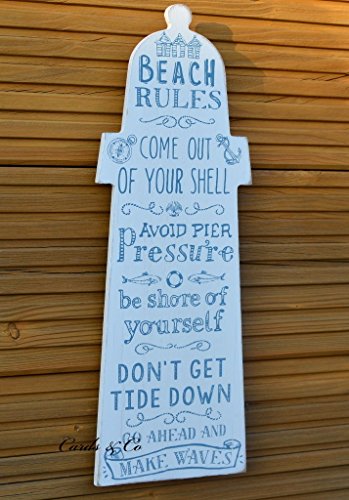 BEACH
RULES
COME OUT
OF YOUR SHELL
AVOID PIER
Pressure
be shore of
yourself
DON'T GET
TIDE DOWN
GO AHEAD AND
MAKE WAVES
Cards & Co